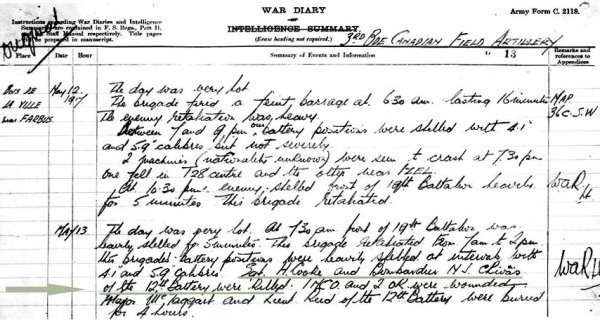 WAR DIARY
or
INTELLIGENCE SUMMARY.
(Erase heading not required.)
Army Form C. 2118.
Instructions regarding War Diaries and Intelligence
Summaries are contained in F. S. Regs., Part II.
and the Staff Manual respectively. Title pages
will be prepared in manuscript.
original
3RD BDE CANADIAN FIELD ARTILLERY
13
Place
Date
Hour
Summary of Events and Information
Remarks and
references to
Appendices
BOIS DE
LA VILLE
near FARBUS
May 12.
1917
The day was very hot
The brigade fired a feint barrage at 630 am. lasting 16 minutes
The enemy retaliation was heavy.
Between 7 and 9 pm our battery positions were shelled with 4.1
and 5.9 calibres but not severely.
2 machines (nationality unknown) were seen to crash at 7.30 pm
one fell in T28 centre and the other near IZEL.
At 10.30 pm. enemy shelled front of 19th Battalion heavily
for 5 minutes this brigade retaliated.
MAP
36c. S.W
MAY 13
The day was very hot. At 730 am front of 19th Battalion was
heavily shelled for 5 minutes. This brigade retaliated. From 7am to 2pm
the brigades battery positions were heavily shelled at intervals with
4.1 and 5.9 Calibres. H. Cooke and Bombardier N.J. Chivas
of the 12th Battery were killed. 1 NCO. and 2 OR were wounded
Major McTaggart and Lieut Reid of the 12th Battery were buried
for 4 hours.